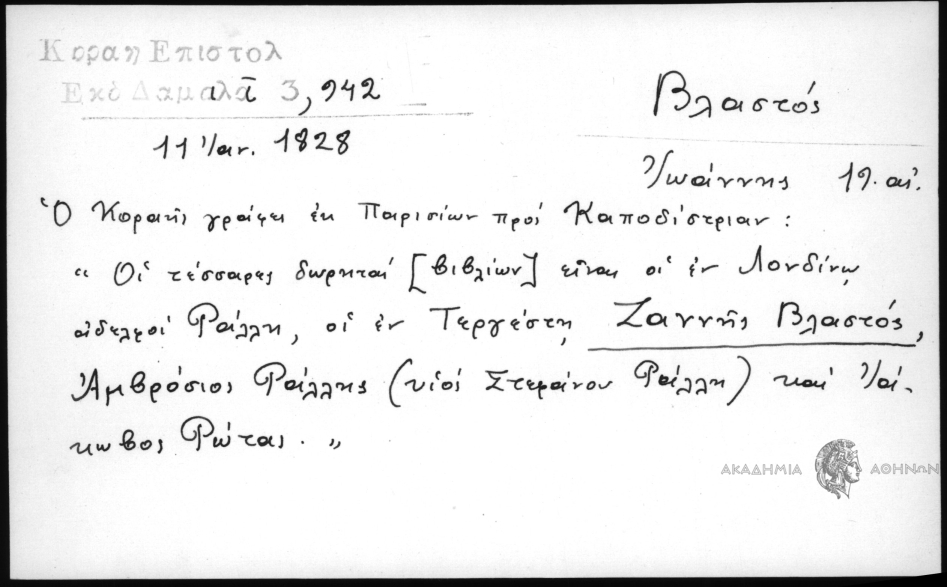 Κοραη Επιστολ
Εκδ Δαμαλᾶ 3, 942
11 Ἰαν. 1828
Βλαστός
Ἰωάννης 19. αἰ.
Ὁ Κοραῆς γράφει ἐκ Παρισίων πρός Καποδίστριαν :
" Οἱ τέσσαρες δωρηταί [βιβλίων] εἶναι οἱ ἐν Λονδίνῳ
ἀδελφοί Ράλλη, οἱ ἐν Τεργέστῃ Ζαννῆς Βλαστός,
Ἀμβρόσιος Ράλλης (υἱός Στεφάνου Ράλλη) καί Ἰά-
κωβος Ρώτας. "
ΑΚΑΔΗΜΙΑ ΑΘΗΝΩΝ